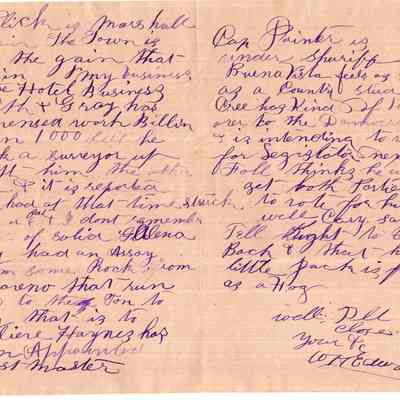 Flick is Marshall
The Town is
the gain that
in my business
Hotel Business
th & Gray has
menced work Billion
n 1000 feet he
k a surveyor up
him the other
& it is reported
had at that time struck
a I dont remember
of solid Galena
had an Assay
some Rock from
areno that run
to the Ton to
that is to
liere Haynez has
n Appointed
st Master
Cap Painter is
under Sheriff
Buena Vista feels as
as a County
Gee has Kind of
over to the Democra
& is intending to
for Legislator nex
Fall thinks he
get both Partie
to vote for hi
well Cary sa
Tell Hught to
Back & that h
little Jack is f
as a Hog
well Ill
Close
Your Fr
W H Edwa